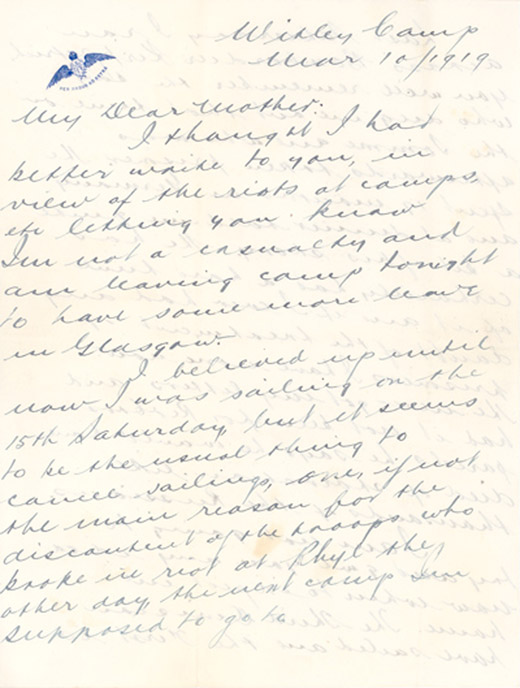 Witley Camp
Mar 10/1919
PER ARDUA AD ASTRA
My Dear Mother:
I thought I had
better write to you, in
view of the riots at camps,
etc letting you know
I'm not a casualty and
am leaving camp tonight
to have some more leave
in Glasgow.
I believed up until
now I was sailing on the
15th Saturday, but it seems
to be the usual thing to
cancel sailings, one, if not
the main reason for the
discontent of the troops who
broke in riot at Rhyl the
other day, the next camp I'm
supposed to go to